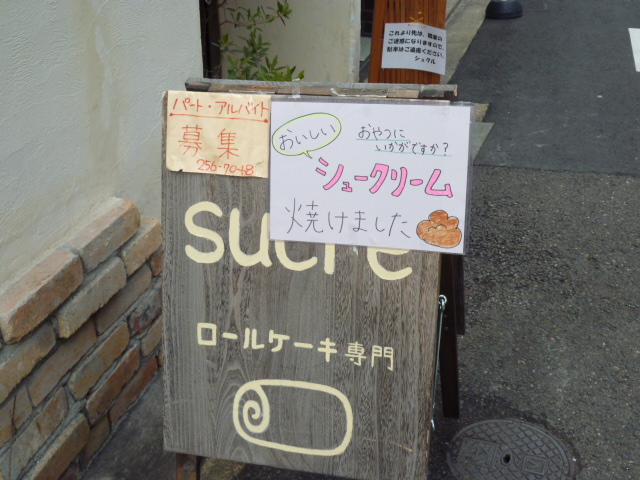 これより先は、隣家の
ご迷惑になりますので、
駐車はご遠慮ください。
シュクル
パート・アルバイト
募集
256-7048
おいしい
おやつに
いかがですか?
シュークリーム
焼けました
sucre
ロールケーキ専門